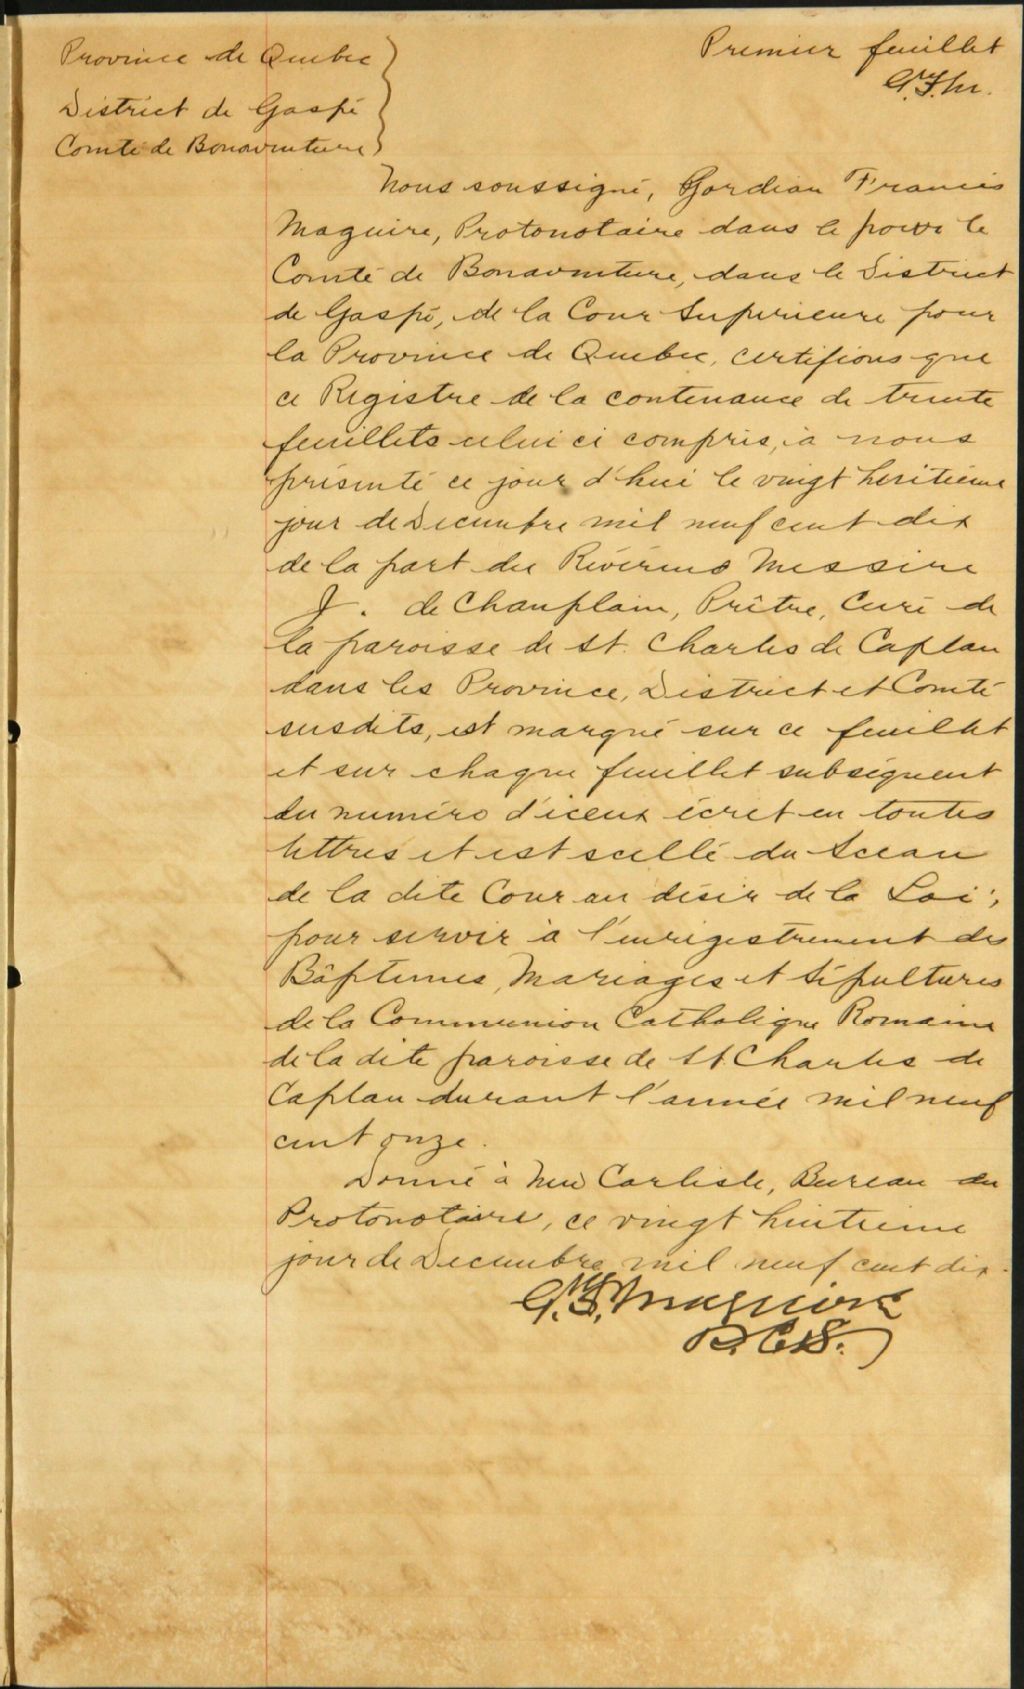 Province de Quebec
Premier feuillet
G.F.M.
District de Gaspé
Comté de Bonaventure
Nous soussigné, Gordian Francis
Maguire, Protonotaire dans le pour le
Comté de Bonaventure, dans le District
de Gaspé, de la Cour Superieure pour
la Province de Quebec, certifions que
ce Registre de la contenance de trente
feuillets celui ci compris, à nous
présenté ce jour d'hui le vingt huitième
jour de Decembre mil neuf cent dix
de la part du Révérend Messire
J. de Champlain, Prêtre, Curé de
la paroisse de St. Charles de Caplan
dans les Province, District et Comté
susdits, est marqué sur ce feuillet
et sur chaque feuillet subséquent
du numéro d'iceux écrit en toutes
lettres et est scellé du Sceau
de la dite Cour au désir de la Loi;
pour servir à l'enregistrement des
Bâptemes, Mariages et Sépultures
de la Communion Catholique Romaine
de la dite paroisse de St. Charles de
Caplan durant l'année mil neuf
cent onze.
Donné à New Carlisle, Bureau du
Protonotaire, ce vingt huitieme
jour de Decembre mil neuf cent dix.
G.F. Maguire
P.C.S.